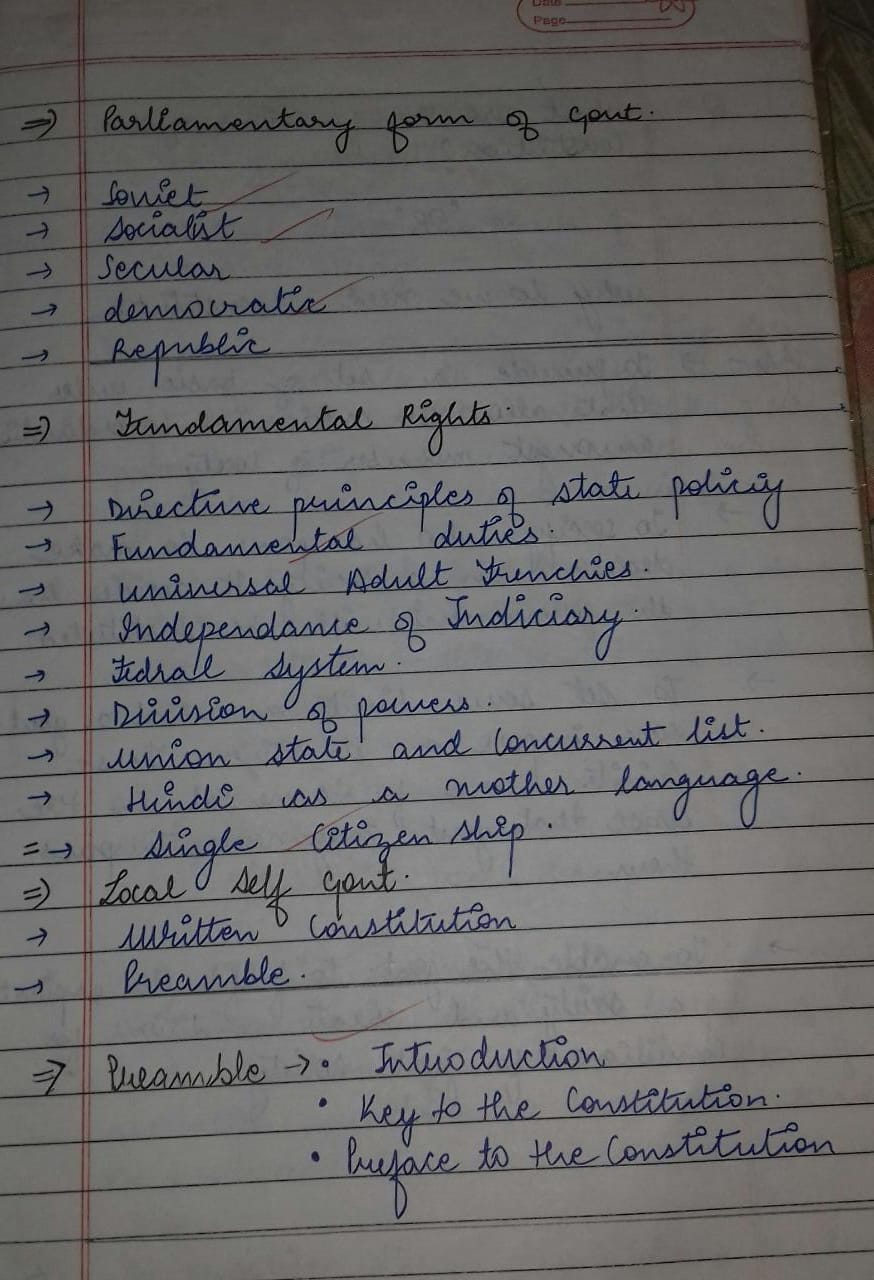 Date
Page
⇒ Parliamentary form of Govt.
→ Soviet
→ Socialist
→ Secular
→ democratic
→ Republic
⇒ Fundamental Rights.
→ Directive principles of state policiy
→ Fundamental duties.
→ universal Adult Frenchies.
→ Independance of Indiciary.
→ Fedrall system.
→ Division of powers.
→ Union state and Concurrent list.
→ Hindi as a mother language.
=→ Single Citizen ship.
⇒ Local Self Govt.
→ Written Constitution
→ Preamble.
⇒ Preamble →• Introduction
• Key to the Constitution.
• Preface to the Constitution